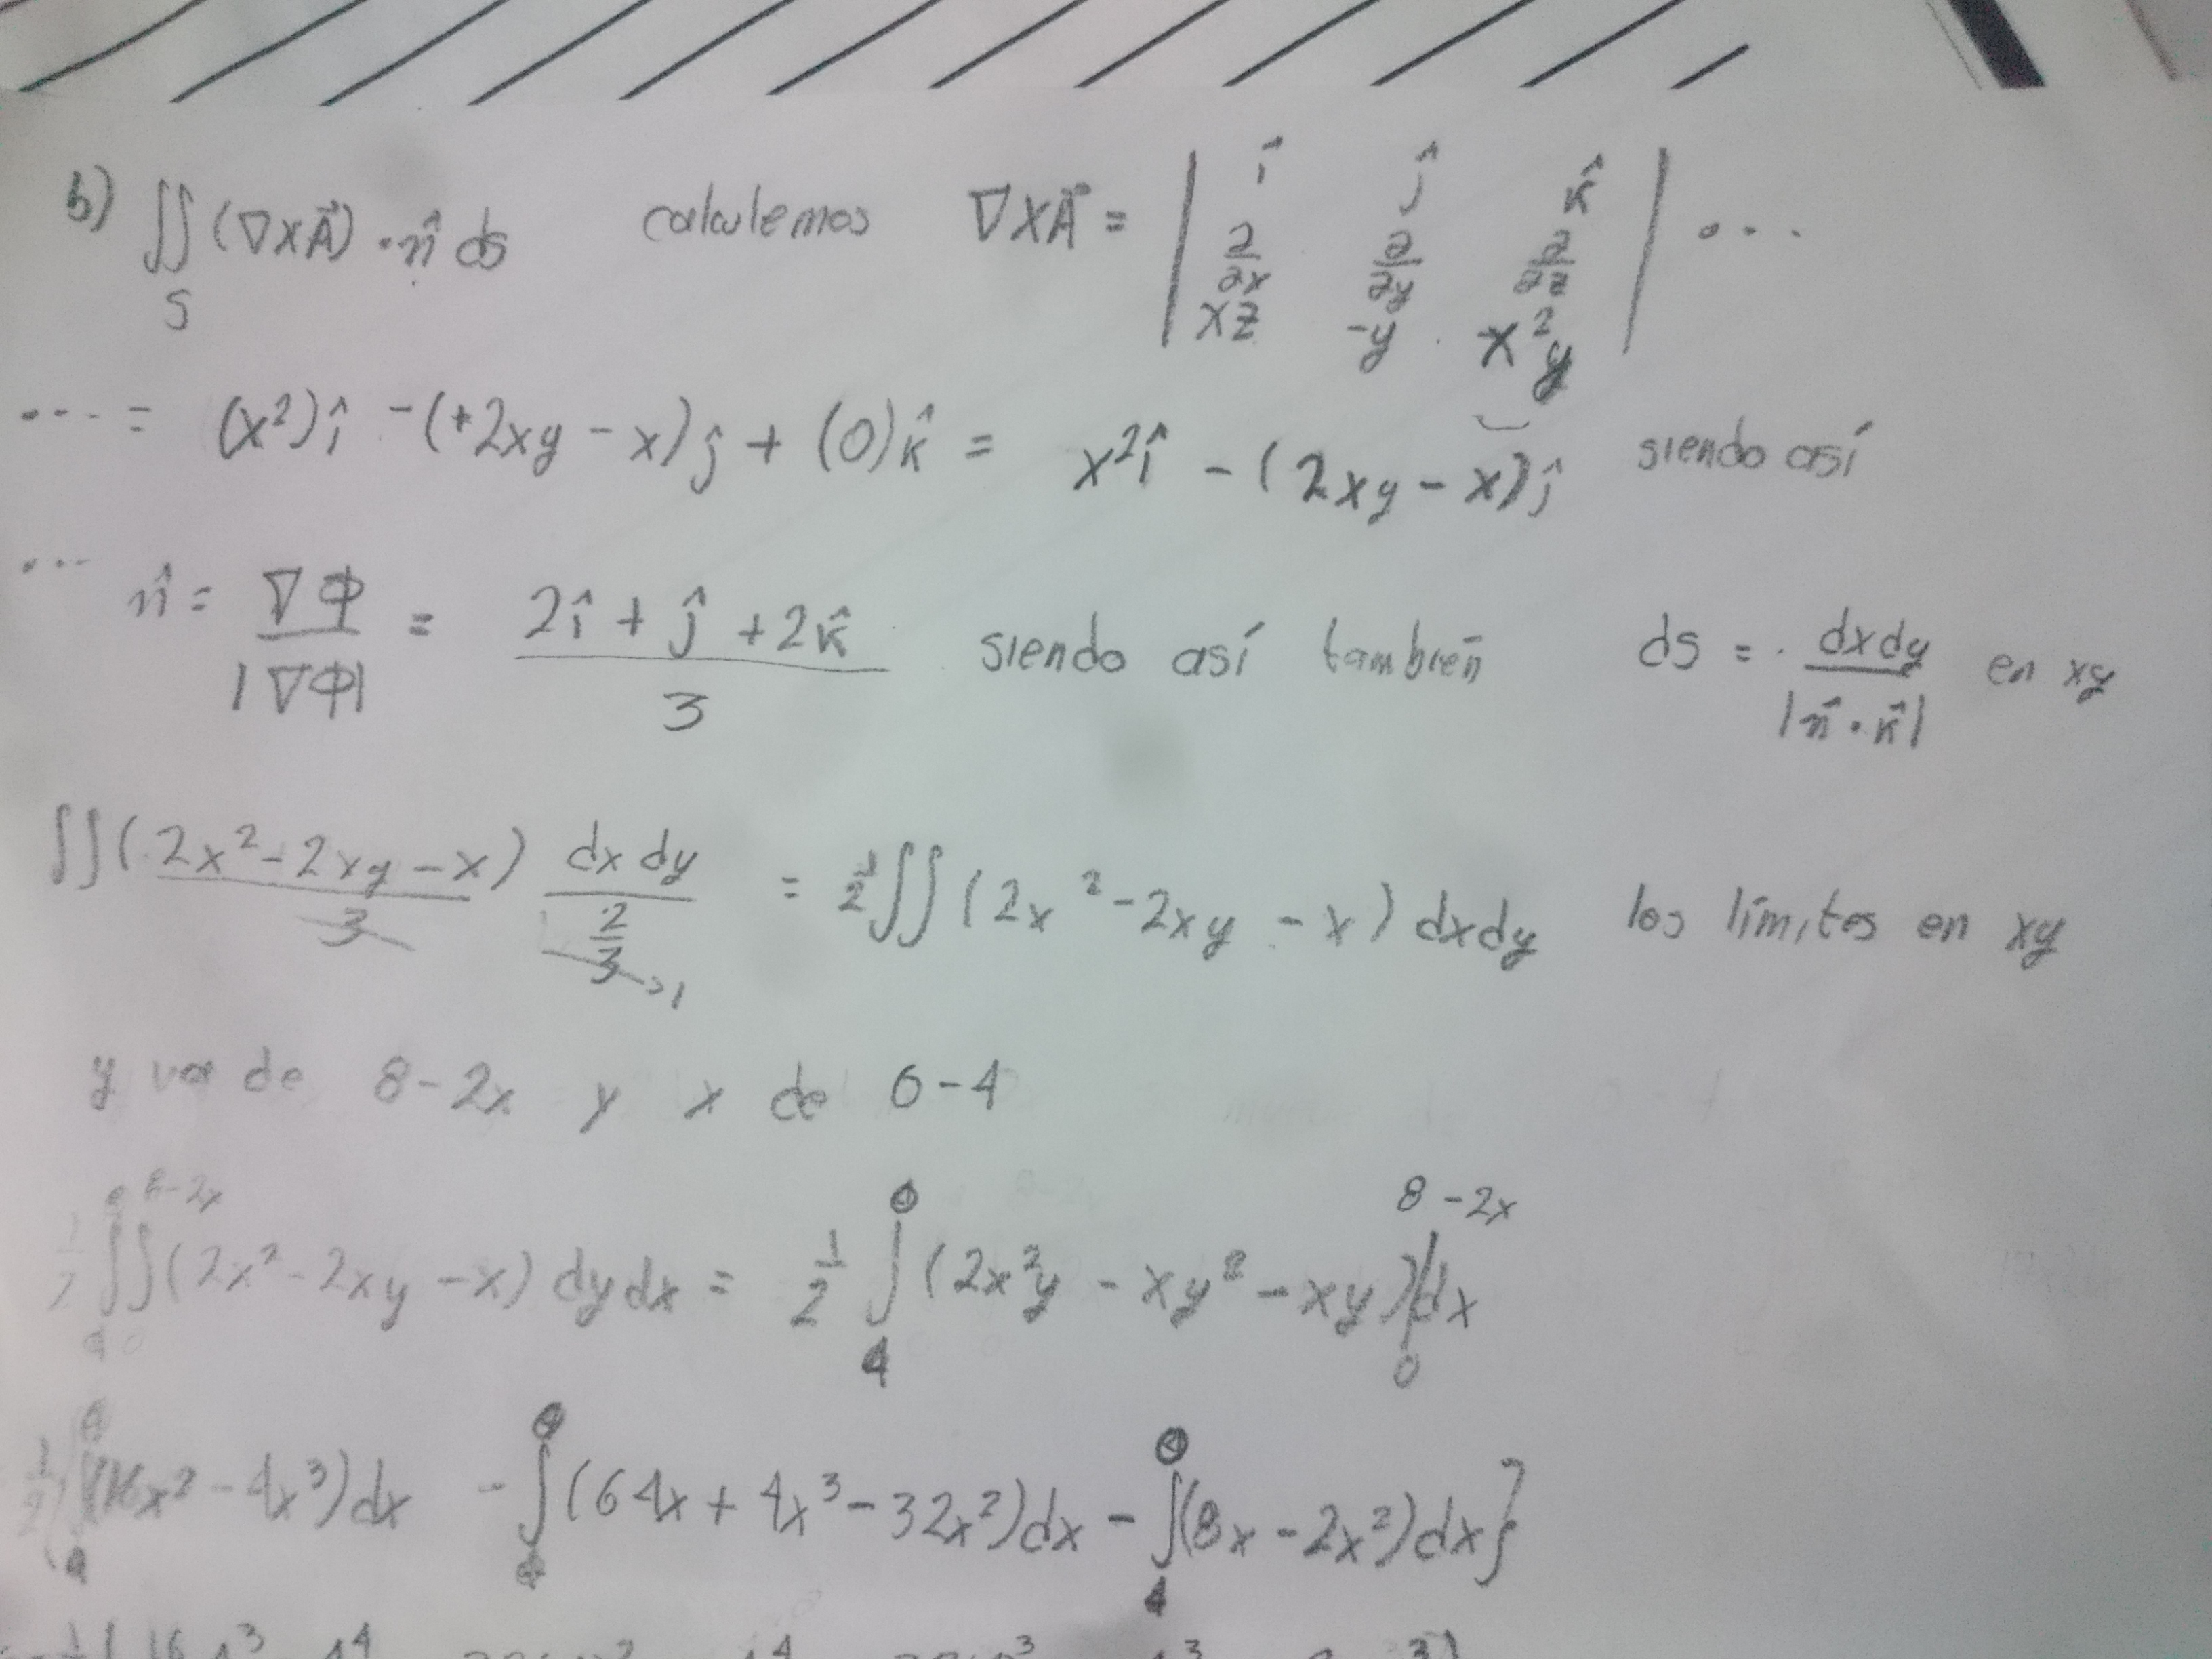 b) ∬_S (∇×A⃗)·n̂ ds calculemos ∇×A⃗ = | î ĵ k̂ ; ∂/∂x ∂/∂y ∂/∂z ; xz -y x²y | ...
... = (x²)î -(+2xy - x)ĵ + (0)k̂ = x²î - (2xy - x)ĵ siendo así
... n̂ = ∇Φ/|∇Φ| = (2î + ĵ + 2k̂)/3 siendo así también ds = dxdy/|n̂·k̂| en xy
∬ (2x² - 2xy - x)/3 dx dy/(2/3) →1 = 1/2 ∬ (2x² - 2xy - x) dxdy los límites en xy
y va de 8-2x y x de 0-4
1/2 ∫_4^0 ∫_0^{8-2x} (2x² - 2xy - x) dy dx = 1/2 ∫_4^0 (2x²y - xy² - xy)|_0^{8-2x} dx
1/2 { ∫_4^0 (16x² - 4x³)dx - ∫_4^0 (64x + 4x³ - 32x²)dx - ∫_4^0 (8x - 2x²)dx }